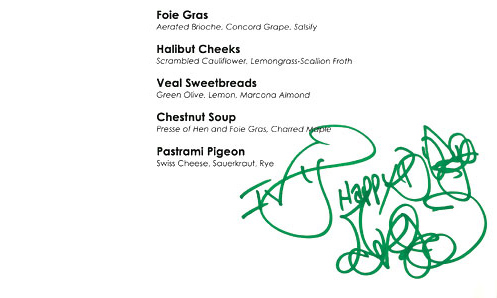 Foie Gras
Aerated Brioche, Concord Grape, Salsify
Halibut Cheeks
Scrambled Cauliflower, Lemongrass-Scallion Froth
Veal Sweetbreads
Green Olive, Lemon, Marcona Almond
Chestnut Soup
Presse of Hen and Foie Gras, Charred Maple
Pastrami Pigeon
Swiss Cheese, Sauerkraut, Rye
Happy